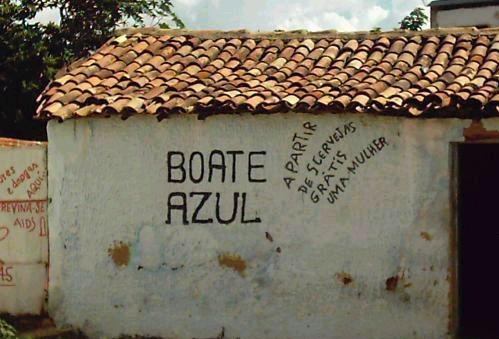 BOATE
AZUL
A PARTIR
DE 5 CERVEJAS
GRÁTIS
UMA MULHER
e drogas
AQUI
REVINA-SE
AIDS